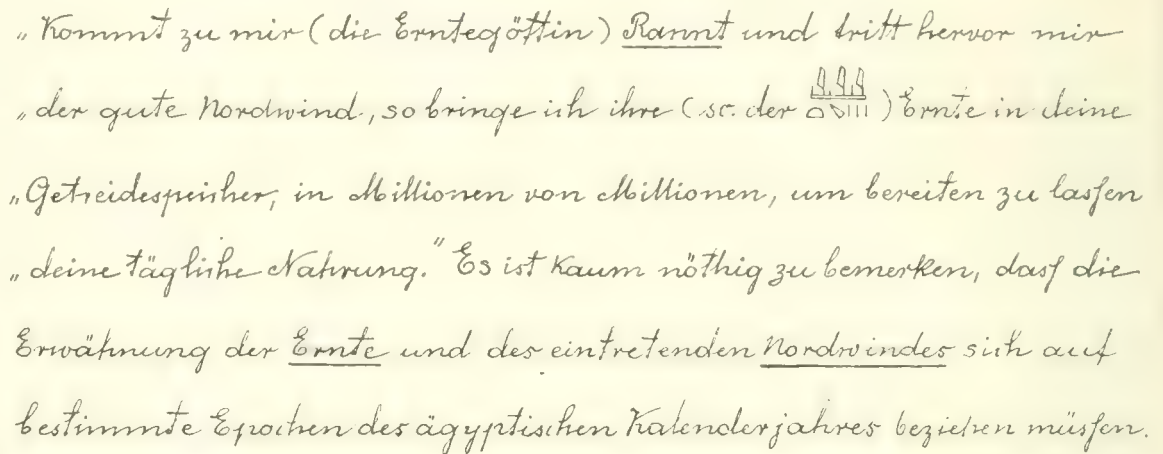 „Kommt zu mir (die Erntegöttin) Rannt und tritt hervor mir
„der gute Nordwind, so bringe ich ihre (sc. der ) Ernte in deine
„Getreidespeicher, in Millionen von Millionen, um bereiten zu lassen
„deine tägliche Nahrung." Es ist kaum nöthig zu bemerken, dass die
Erwähnung der Ernte und des eintretenden Nordwindes sich auf
bestimmte Epochen des ägyptischen Kalenderjahres beziehen müssen.